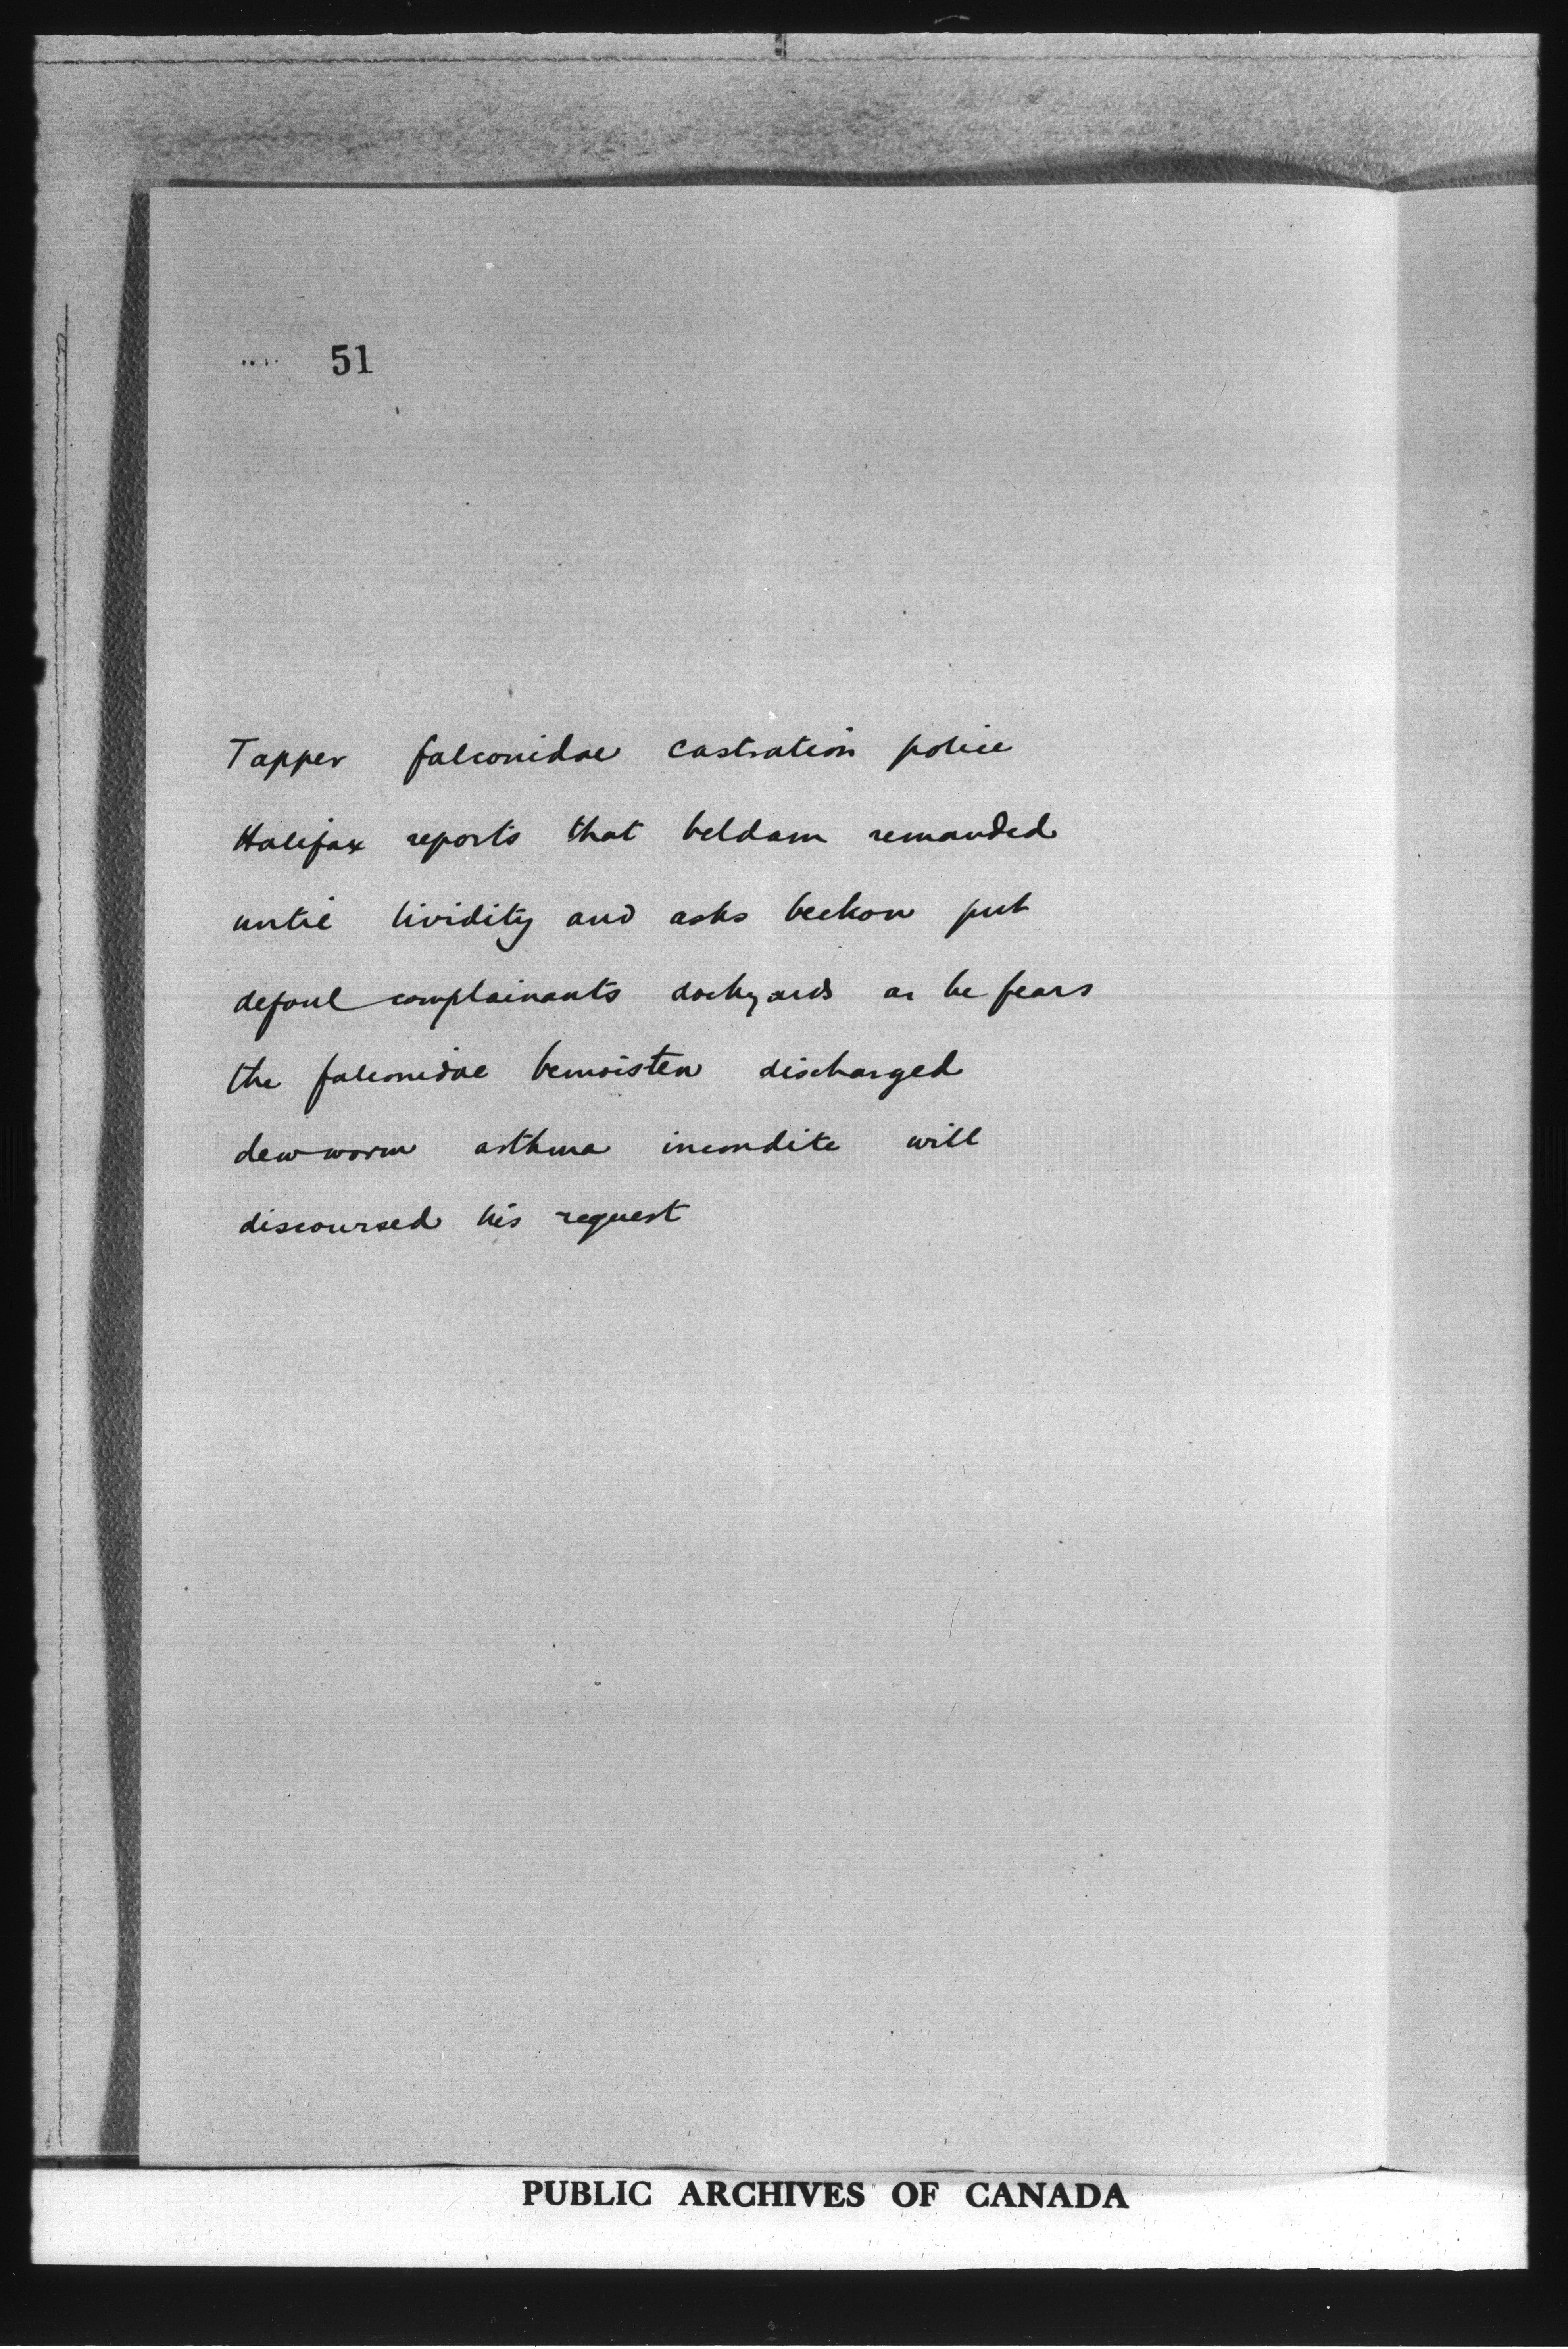 51
Tapper falconidae castration police
Halifax reports that beldam remanded
until lividity and asks beckon put
defoul complainants dockyards as he fears
the falconidae bemoisten discharged
dew-worm asthma incondite will
discoursed his request
PUBLIC ARCHIVES OF CANADA